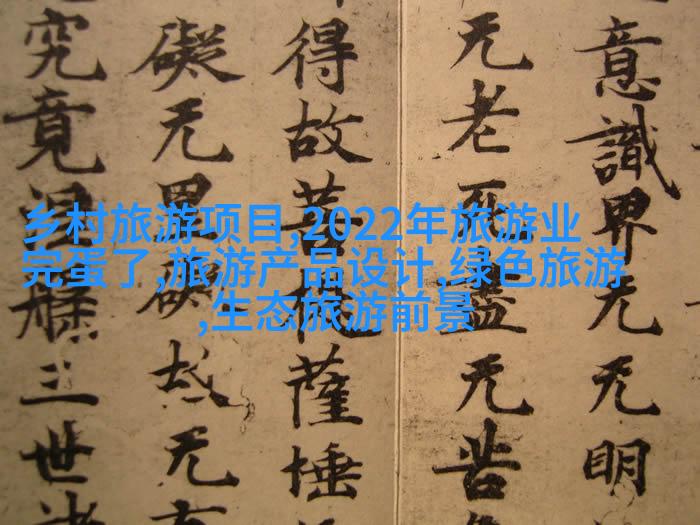 乡村旅游项目,2022年旅游业
完蛋了,旅游产品设计,绿色旅游
,生态旅游前景
意識界无无明
无老死盡无苦
得故菩提薩埵
礙无罣礙故无有
究竟涅槃三世諸